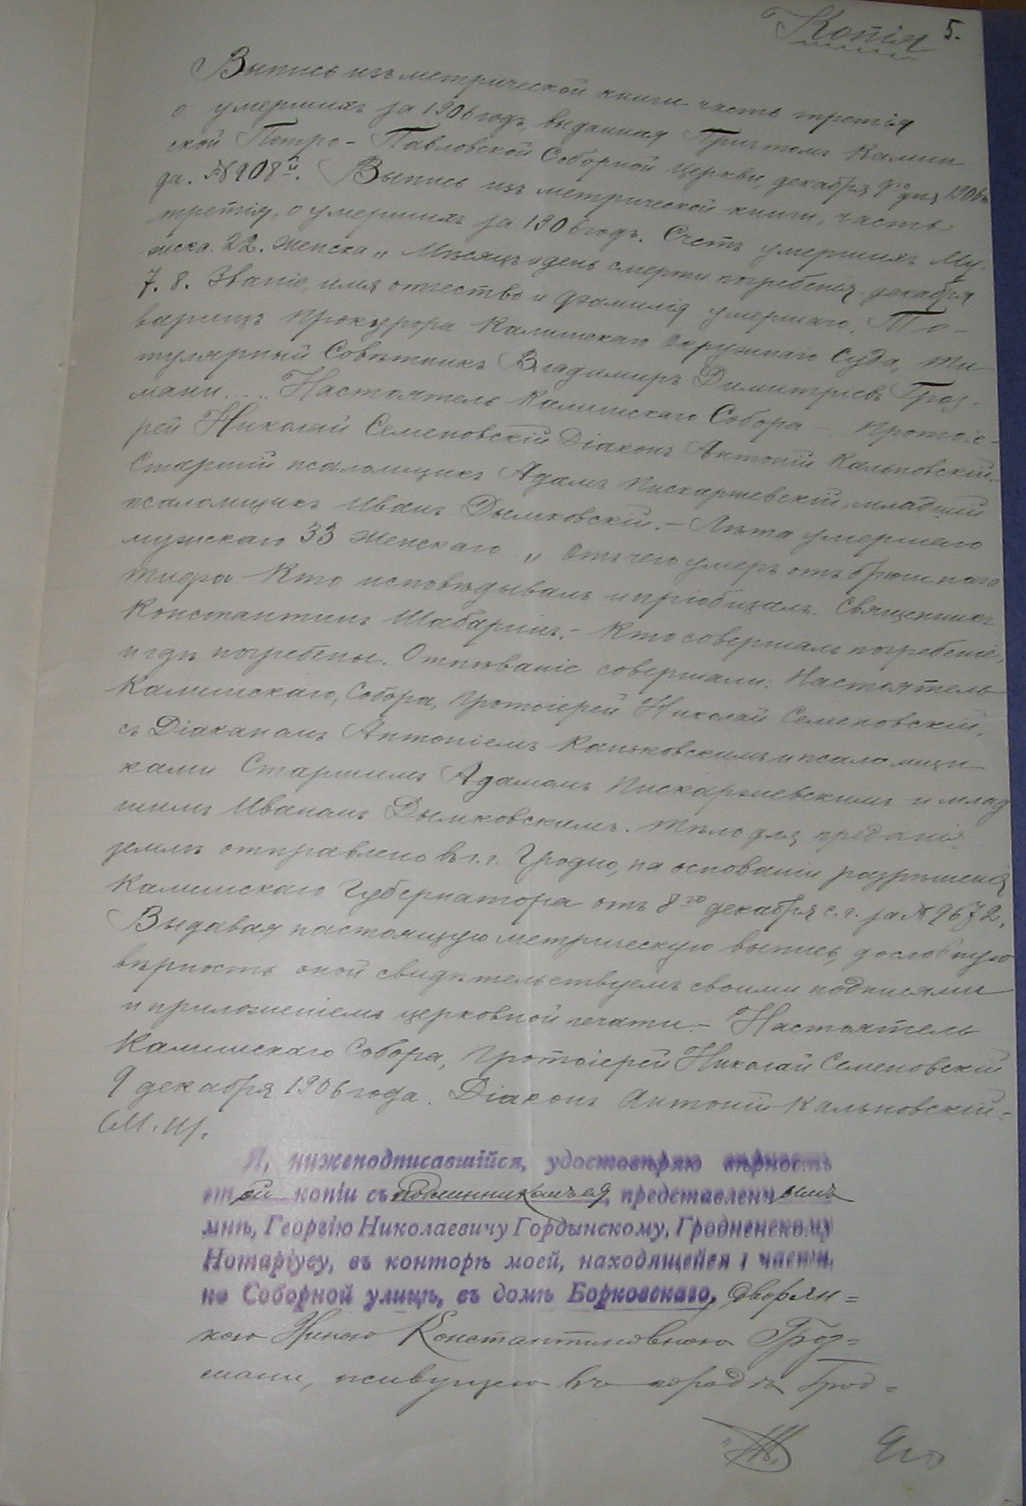 Копія 5.
Выпись изъ метрической книги часть третія
о умершихъ за 1906 годъ, выданная Причтомъ Калиш-
ской Петро-Павловской Соборной церкви, декабря 9го дня 1906 го-
да. № 908й. Выпись изъ метрической книги, часть
третія, о умершихъ за 1906 годъ. Счетъ умершихъ Му-
жска. 22. Женска „ Мѣсяцъ и день смерти погребенія декабря
7. 8. Званіе, имя отчество и фамилія умершаго. То-
варищъ Прокурора Калишскаго Окружнаго Суда, Ти-
тулярный Совѣтникъ Владимиръ Димитріевъ Гроз-
мани.... Настоятель Калишскаго Собора – Протоіе-
рей Николай Семеновскій Діаконъ Антоній Кальковскій.
Старшій псаломщикъ Адамъ Пискаржевскій, младшій
псаломщикъ Иванъ Дымковскій. – Лѣта умершаго
мужскаго 33 женскаго „ Отъ чего умеръ отъ брюшнаго
тифа Кто исповѣдывалъ и пріобщалъ. Священникъ
Константинъ Шабаринъ. – Кто совершалъ погребеніе,
и гдѣ погребены. Отпѣваніе совершали: Настоятель
Калишскаго, Собора, Протоіерей Николай Семеновскій,
съ Діакономъ Антоніемъ Кальковскимъ и псаломщи-
ками Старшимъ Адамомъ Пискаржевскимъ и млад
шимъ Иваномъ Дымковскимъ. Тѣло для преданія
землѣ отправлено въ г. Гродно, на основаніи разрѣшенія
Калишскаго Губернатора отъ 8го декабря с. г. за № 9672.
Выдавая настоящую метрическую выпись, дословную
вѣрность оной свидѣтельствуемъ своими подписями
и приложеніемъ церковной печати. – Настоятель
Калишскаго Собора, Протоіерей Николай Семеновскій
9 декабря 1906 года. Діаконъ Антоній Кальковскій.
(М. П).
Я, нижеподписавшійся, удостовѣряю вѣрность
этой копіи съ подлинникомъ ея, представленнымъ
мнѣ, Георгію Николаевичу Гордынскому, Гродненскому
Нотаріусу, въ конторѣ моей, находящейся 1 части,
по Соборной улицѣ, въ домѣ Борковскаго, дворян-
кою Ниною Константиновною Гроз-
мани, живущею въ городѣ Грод-